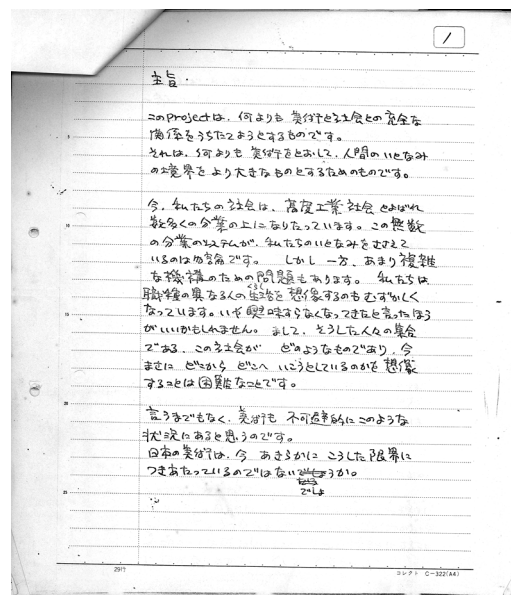 1
主旨.
このprojectは、何よりも 美術と社会との 完全な
関係をうちたてようとするものです。
それは、何よりも 美術をとおして、人間のいとなみ
の境界をより大きなものとするためのものです。
今、私たちの社会は、高度工業社会とよばれ
数多くの分業の上になりたっています。この無数
の分業のシステムが、私たちのいとなみをささえて
いるのは勿論です。 しかし 一方、あまり複雑
な機構のための問題もあります。 私たちは
職種の異なる人の生活を想像するのもむずかしく
くらし
なっています。いや興味すらなくなってきたと言ったほう
がいいかもしれません。まして、そうした人々の集合
である、この社会が どのようなものであり、今
まさに どこから どこへ いこうとしているのかを想像
することは困難なことです。
言うまでもなく、美術も 不可避的にこのような
状況にあると思うのです。
日本の美術は、今 あきらかに こうした限界に
つきあたっているのではないょうか。
でしょ
5
10
15
20
25
29行
コレクト C-322(A4)